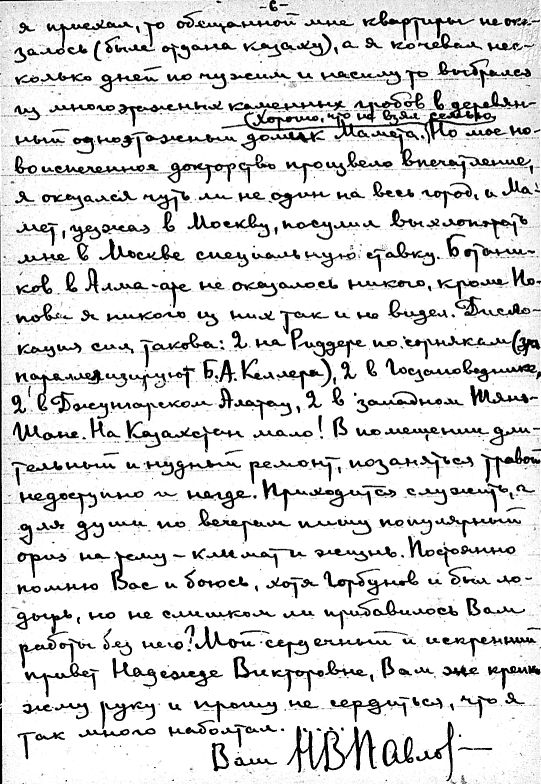 -6-
я приехал, то обещанной мне квартиры не ока-
залось (была отдана казаху), а я кочевал нес-
колько дней по чужим и насилу то выбрался
из многоэтажных каменных гробов в деревян-
(Хорошо, что не взял семью)
ный одноэтажный домик Мамета. Но мое но-
воиспеченное докторство произвело впечатление,
я оказался чуть ли не один на весь город, и Ма-
мет, уезжая в Москву, посулил выхлопотать
мне в Москве специальную ставку. Ботани-
ков в Алма-ате не оказалось никого, кроме По-
пова я никого из них так и не видел. Дисло-
кация сил такова: 2 на Риддере по сорнякам (
параллелизируют Б.А. Келлера), 2 в Госзаповеднике,
2 в Джунгарском Алатау, 2 в западном Тянь-
Шане. На Казахстан мало! В помещении дли-
тельный и нудный ремонт, позаняться травой
недоступно и негде. Приходится служить, а
для души по вечерам пишу популярный
ориз на тему – климат и жизнь. Постоянно
помню Вас и боюсь, хотя Горбунов и был ло-
дырь, но не слишком ли прибавилось Вам
работы без него? Мой сердечный и искренний
привет Надежде Викторовне, Вам же крепко
жму руку и прошу не сердиться, что я
так много наболтал.
Ваш НВПавлов